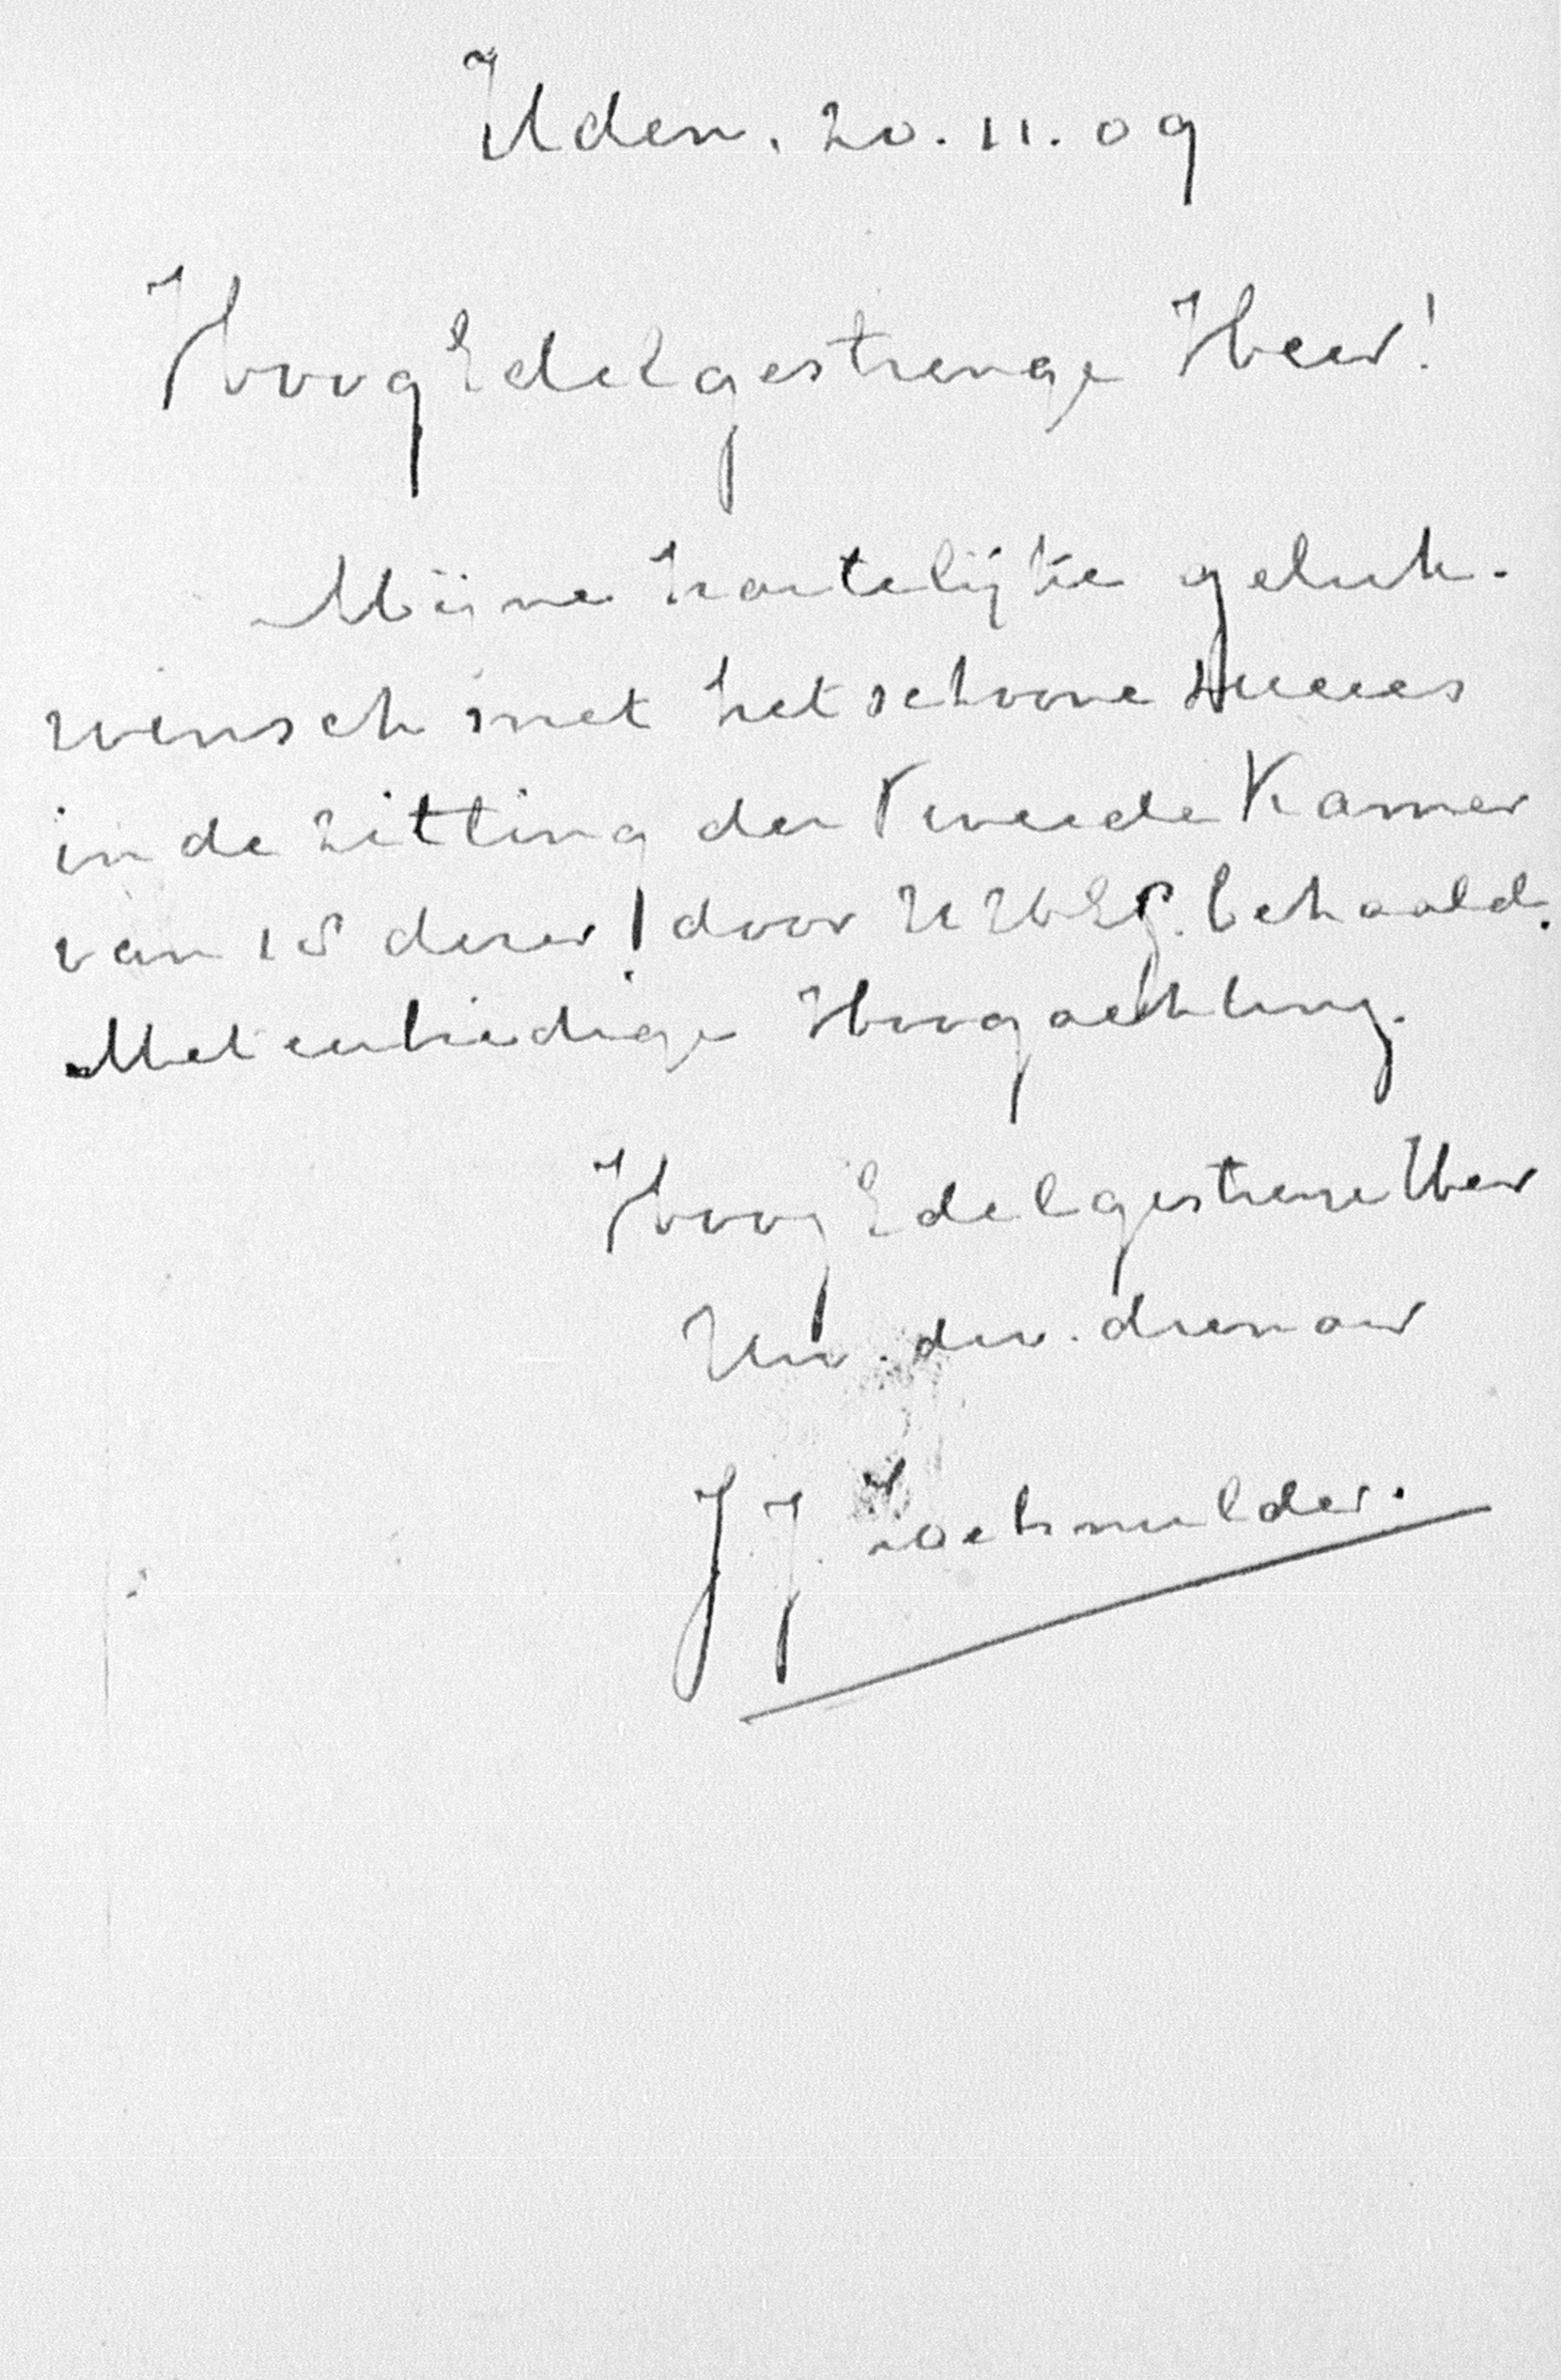 Uden. 20.11.09
HoogEdelgestrenge Heer!
Mijne hartelijke geluk-
wensch met het schoone succes
in de zitting der Tweede Kamer
van 18 dezer! door UHEG. behaald.
Met eerbiedige Hoogachting.
HoogEdelgestrenge Heer
Uw. dw. dienaar
J J. Lochmulder.